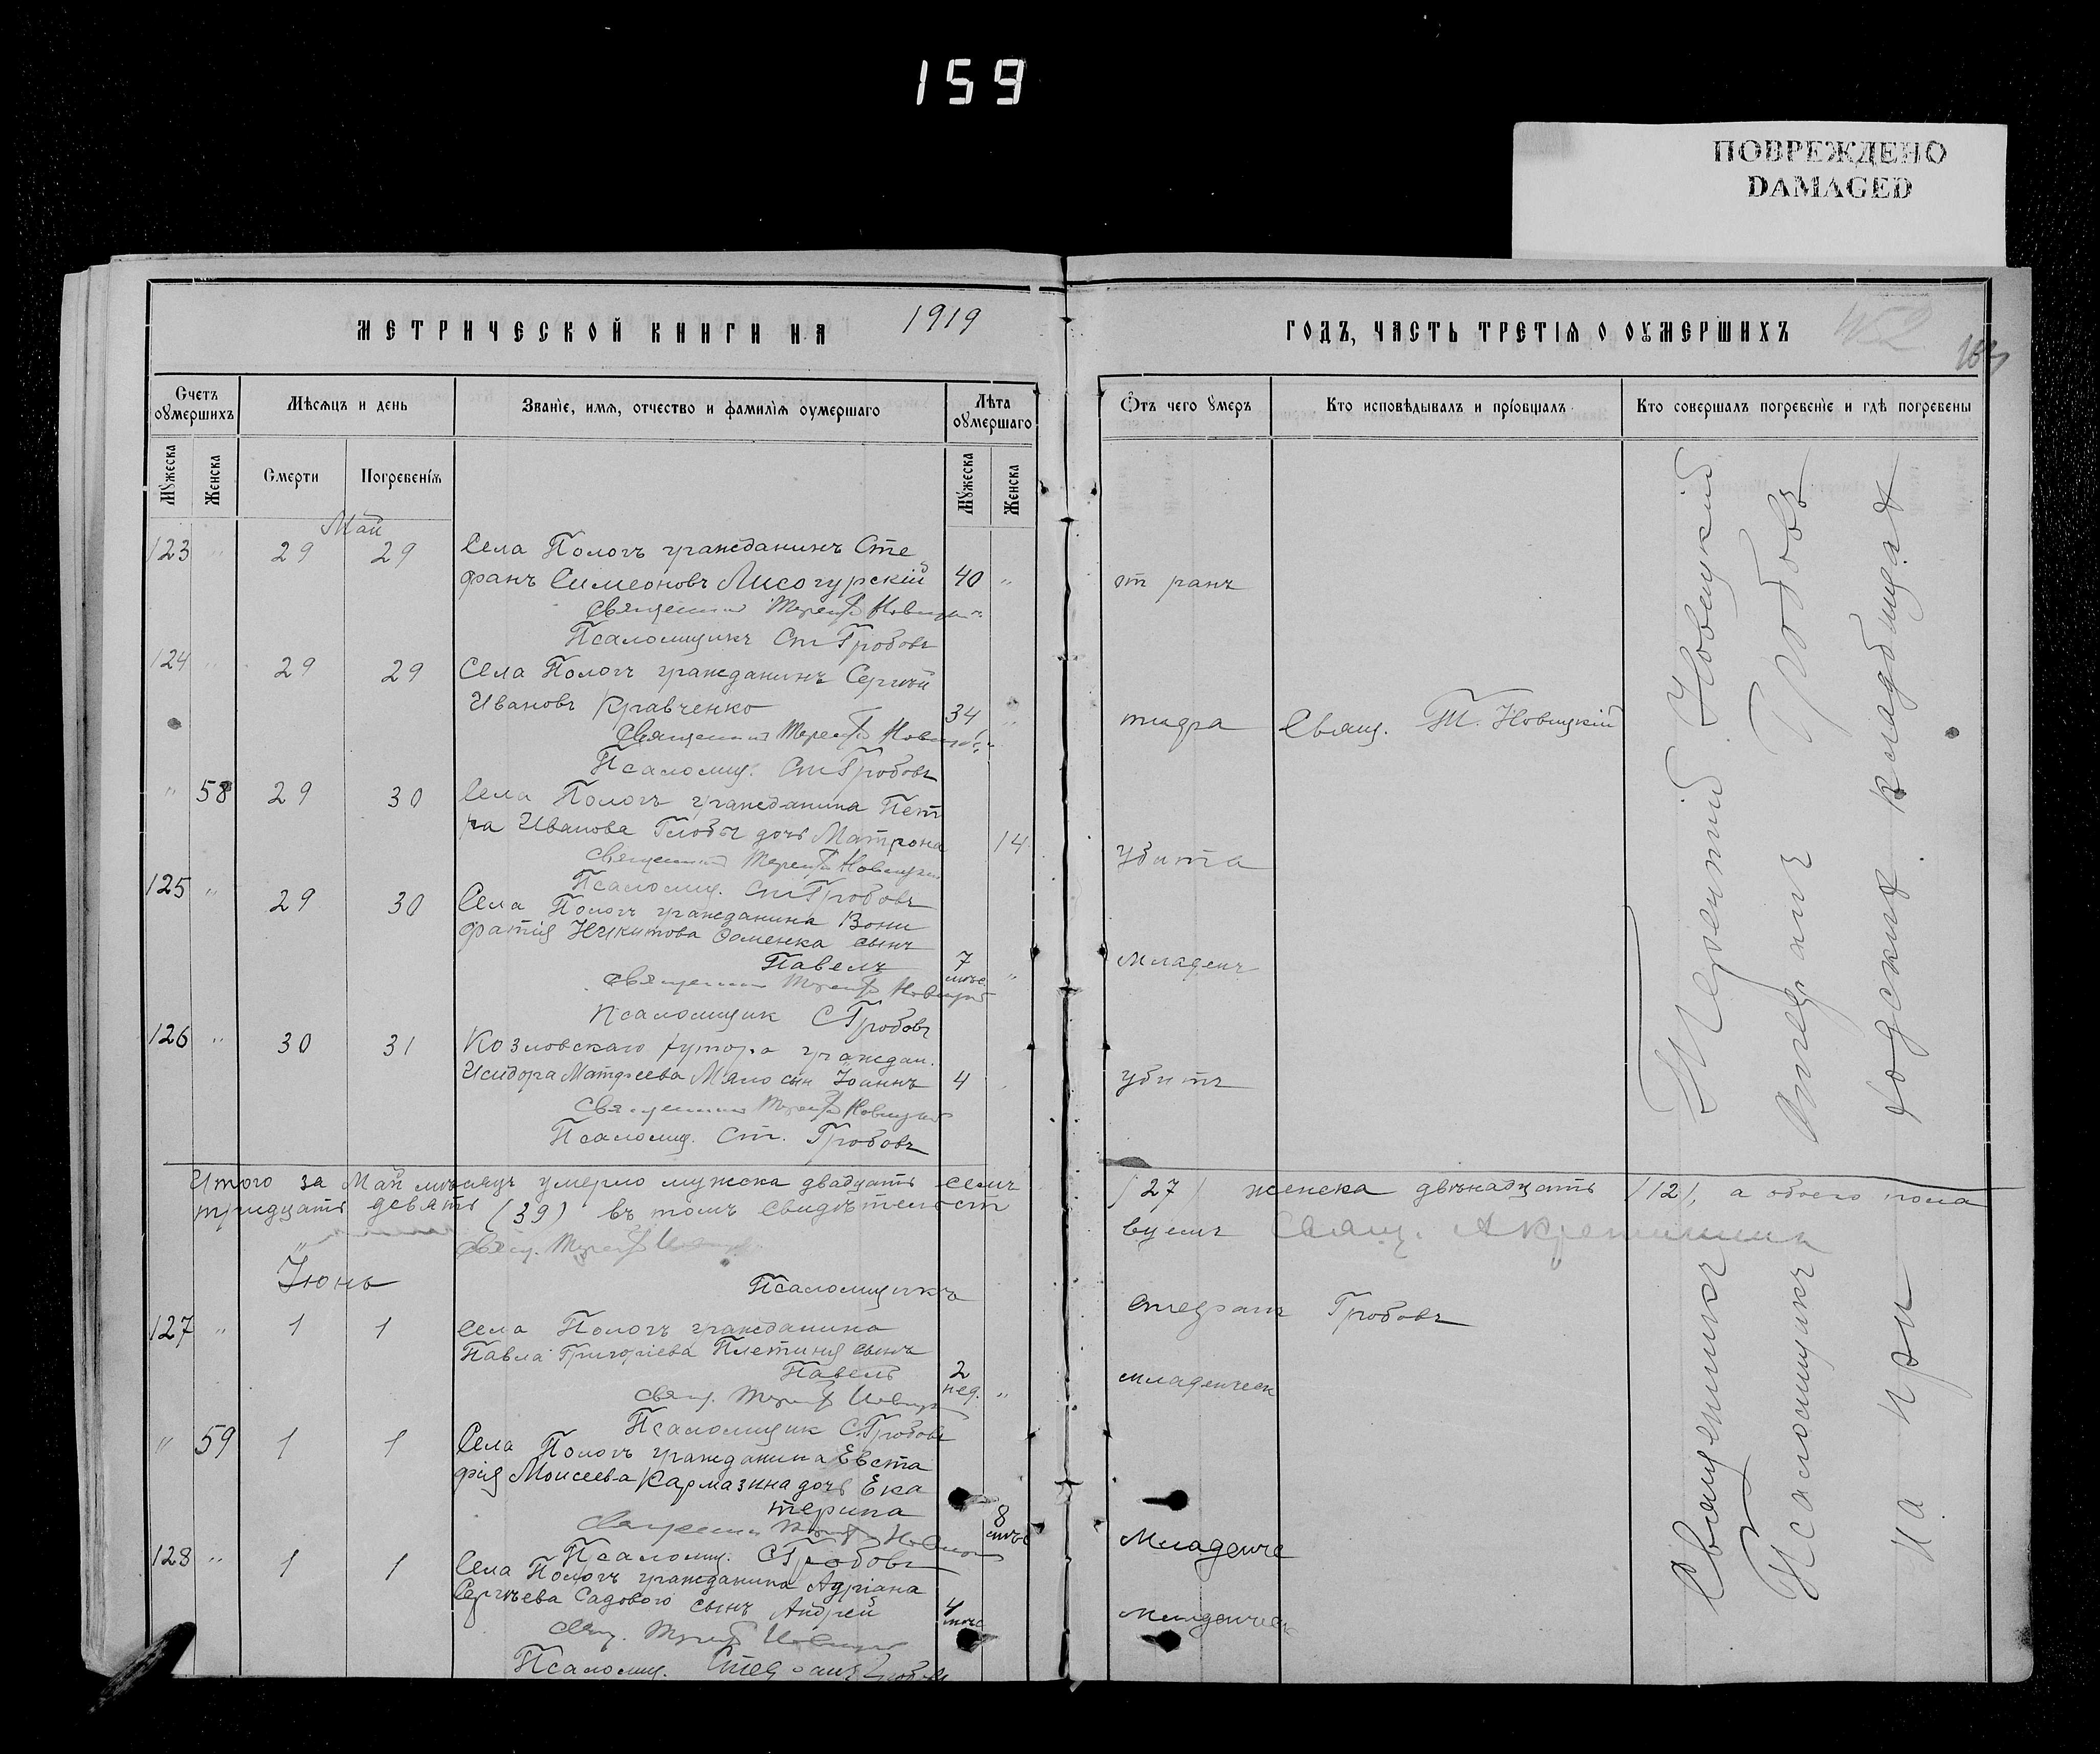 159
ПОВРЕЖДЕНО
DAMAGED
МЕТРИЧЕСКОЙ КНИГИ НА 1919
ГОДЪ, ЧАСТЬ ТРЕТІЯ О ОУМЕРШИХЪ
Счетъ оумершихъ
Мѣсяцъ и день
Званіе, имя, отчество и фамилія оумершаго
Лѣта оумершаго
Отъ чего умеръ
Кто исповѣдывалъ и пріобщалъ
Кто совершалъ погребеніе и гдѣ погребены
Мужеска
Женска
Смерти
Погребенія
Мужеска
Женска
Май
123 " 29 29 Села Пологъ гражданинъ Сте
фанъ Симеоновъ Лисогурскій 40 " от ранъ
Священник Терентій Новицкій
Псаломщикъ Ст Гробовъ
124 " 29 29 Села Пологъ гражданинъ Сергѣй
Ивановъ Кравченко 34 " тифа Свящ. Т. Новицкій
Священник Терентій Новицкій
Псаломщ. Ст Гробовъ
" 58 29 30 Села Пологъ гражданина Пет
ра Иванова Глобы дочь Матрона 14 убита
Священник Терентій Новицкій
Псаломщ. Ст Гробовъ
125 " 29 30 Села Пологъ гражданина Вони
фатія Никитова сынъ
Павелъ 7 мѣс " младенч
Священник Терентій Новицкій
Псаломщик С Гробовъ
126 " 30 31 Козловскаго хутора граждан.
Исидора Матфеева Мяло сын Іоаннъ 4 убитъ
Священник Терентій Новицкій
Псаломщ. Ст. Гробовъ
Итого за Май мѣсяцъ умерло мужска двадцать семь (27) женска двѣнадцать (12), а обоего пола
тридцать девять (39) въ томъ свидѣтельст вуемъ Свящ.
Свящ. Терентій
Псаломщикъ Стефанъ Гробовъ
Іюнь
127 " 1 1 Села Пологъ гражданина
Павла Григоріева Плетиня сынъ
Павелъ 2 нед. " младенческ
Свящ. Терентій Новицкій
Псаломщик С. Гробовъ
" 59 1 1 Села Пологъ гражданина Евста
фія Моисеева Кармазина дочь Ека
терина 8 мѣс Младенче
Священник Терентій Новицкій
Псаломщ. С Гробовъ
128 " 1 1 Села Пологъ гражданина Адріана
Сергѣева Садового сынъ Андрей 4 мѣс младенческ
Свящ. Терентій Новицкій
Псаломщ. Стефанъ Гробовъ
Священникъ Терентій Новицкій
Псаломщикъ Стефанъ Гробовъ
на при ходскомъ кладбищѣ